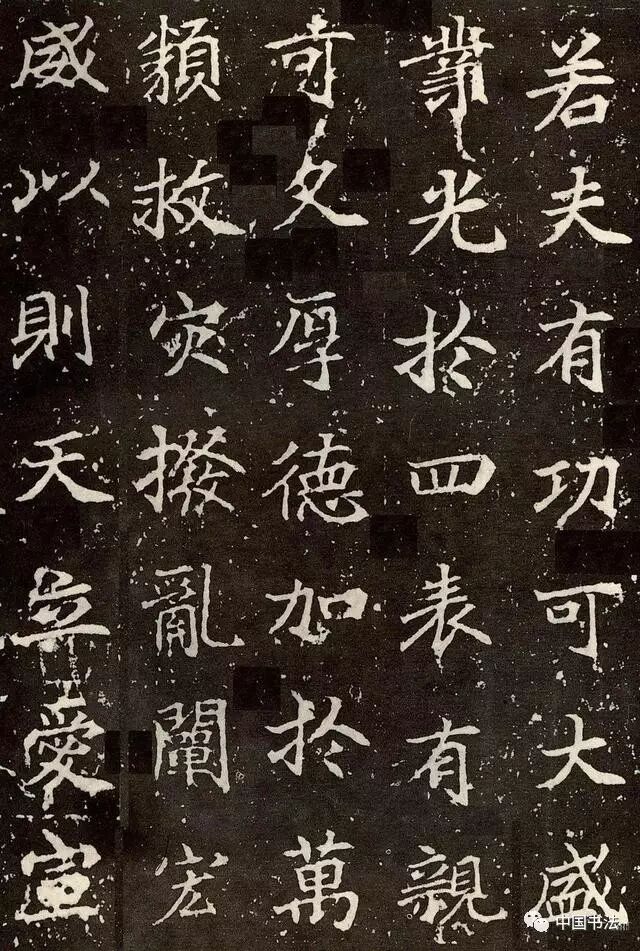 若夫有功可大盛
業光於四表有親
可久厚德加於萬
類救灾撥亂闡宏
威以則天立愛宣
中国书法